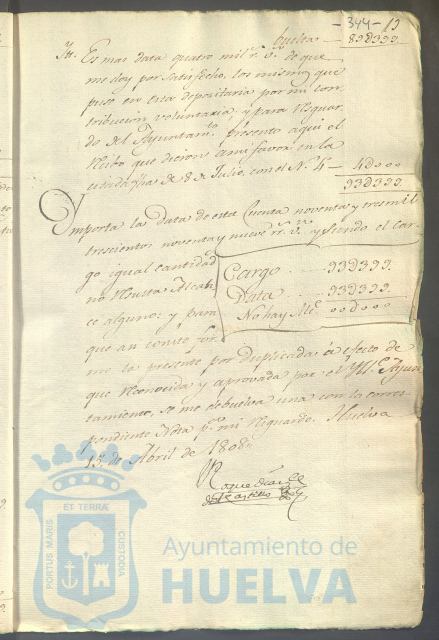 -344- 13
buelta — 89D399.
Ytt. Es mas data quatro mil rs. vn. de que
me doy por Satisfecho, los mismos que
puse en esta depositaria por mi con
tribucion voluntaria; y para Resguar
do del Ayuntamto. presento aqui el
Recibo que dieron a mi favor en la
citada fha de 8 de Julio, con el N.º 4 — 4D000
93D399.
Ymporta la data de esta Cuenta noventa y tres mil
trescientos noventa y nueve rs. vn. y siendo el Car-
go igual cantidad
no Resulta Alcan
ce alguno: y para
que asi conste for
Cargo ..... 93D399.
Data ..... 93D399.
No hay Alce. 00D000.
mo la presente por duplicada à efecto de
que Reconocida y aprovada por el Yll.e Ayun
tamiento, se me debuelva una con la corres-
pondiente Nota pa. mi Resguardo. Huelva
13 de Abril de 1808
Roque Diaz
del Castillo
PORTUS MARIS ET TERRAE CUSTODIA
Ayuntamiento de
HUELVA